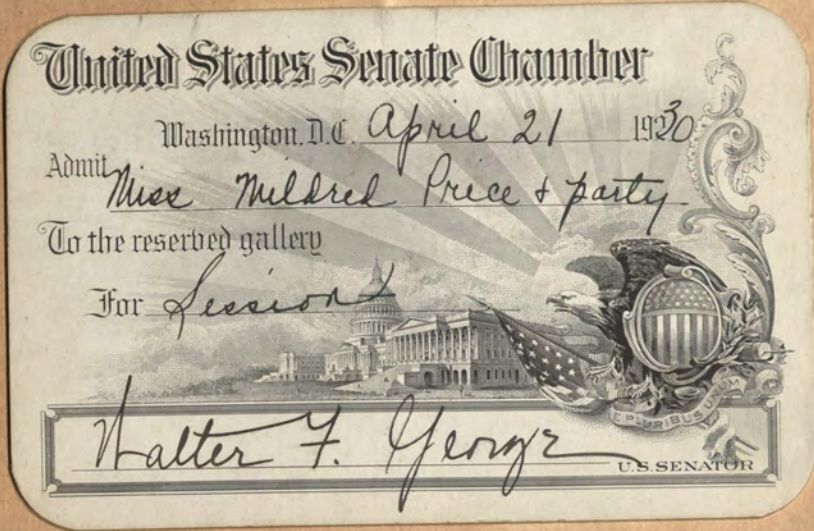 United States Senate Chamber
Washington, D.C. April 21 1930
Admit Miss Mildred Price & party
To the reserved gallery
For Session
E PLURIBUS UNUM
Walter F. George
U.S. SENATOR